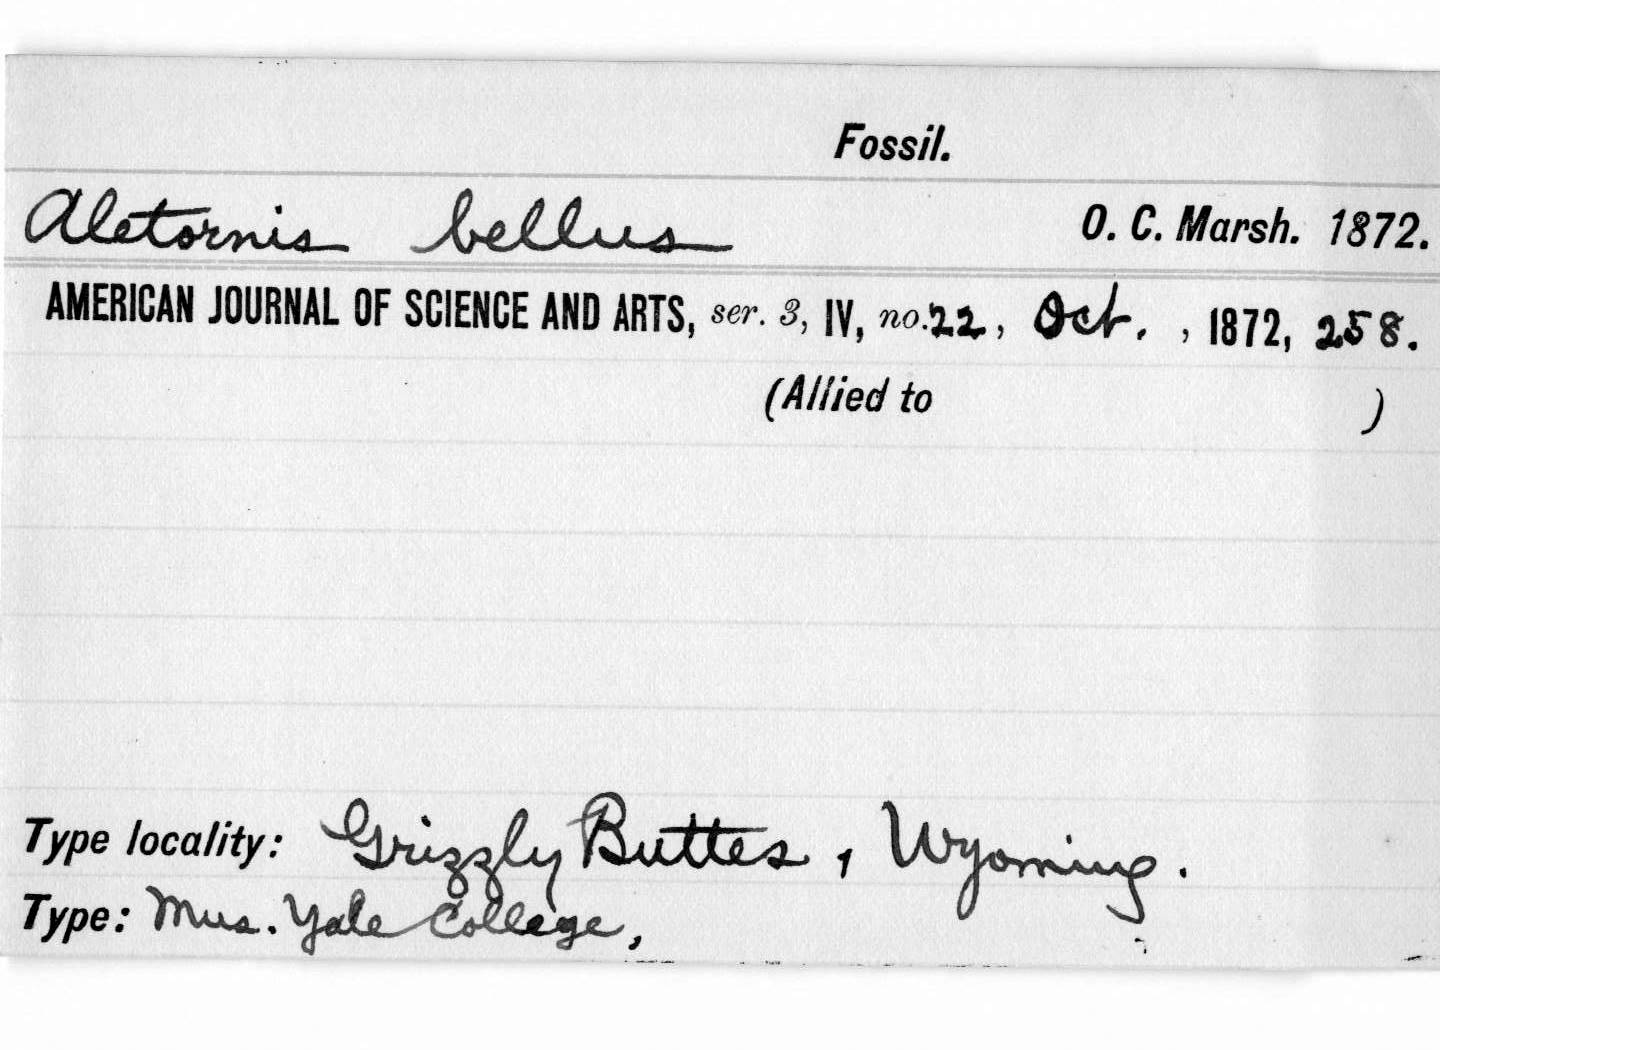 Fossil.
Aletornis bellus O. C. Marsh. 1872.
AMERICAN JOURNAL OF SCIENCE AND ARTS, ser. 3, IV, no. 22, Oct. , 1872, 258.
(Allied to )
Type locality: Grizzly Buttes, Wyoming.
Type: Mus. Yale College,